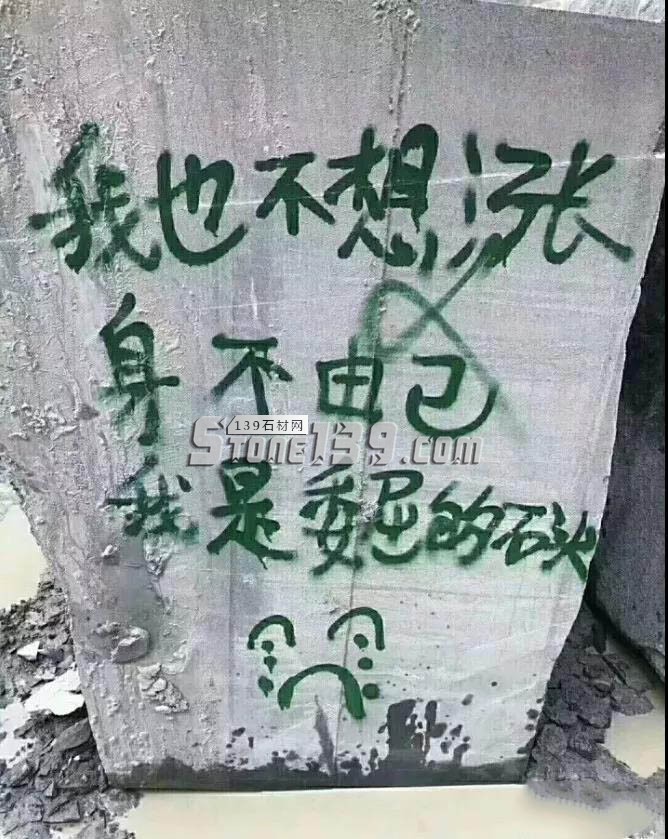 我也不想涨
身不由己
139石材网
STONE139.com
我是委屈的石头